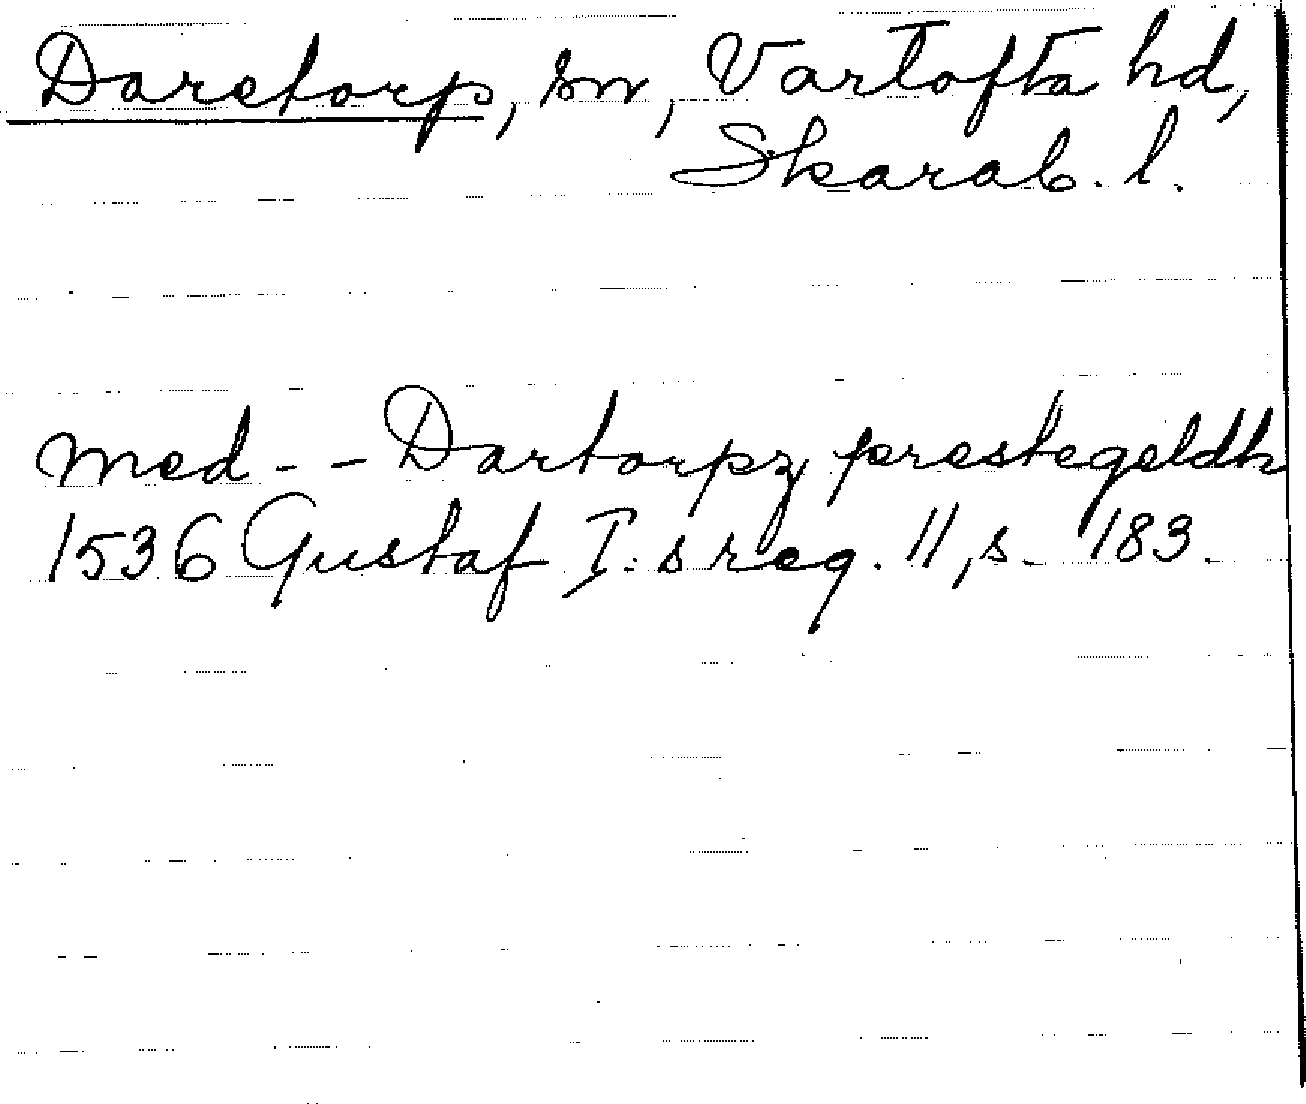 Daretorp, sn, Vartofta hd,
Skarab. l.
med - - Dartorpz prestegeldh
1536 Gustaf I:s reg. 11, s. 183.